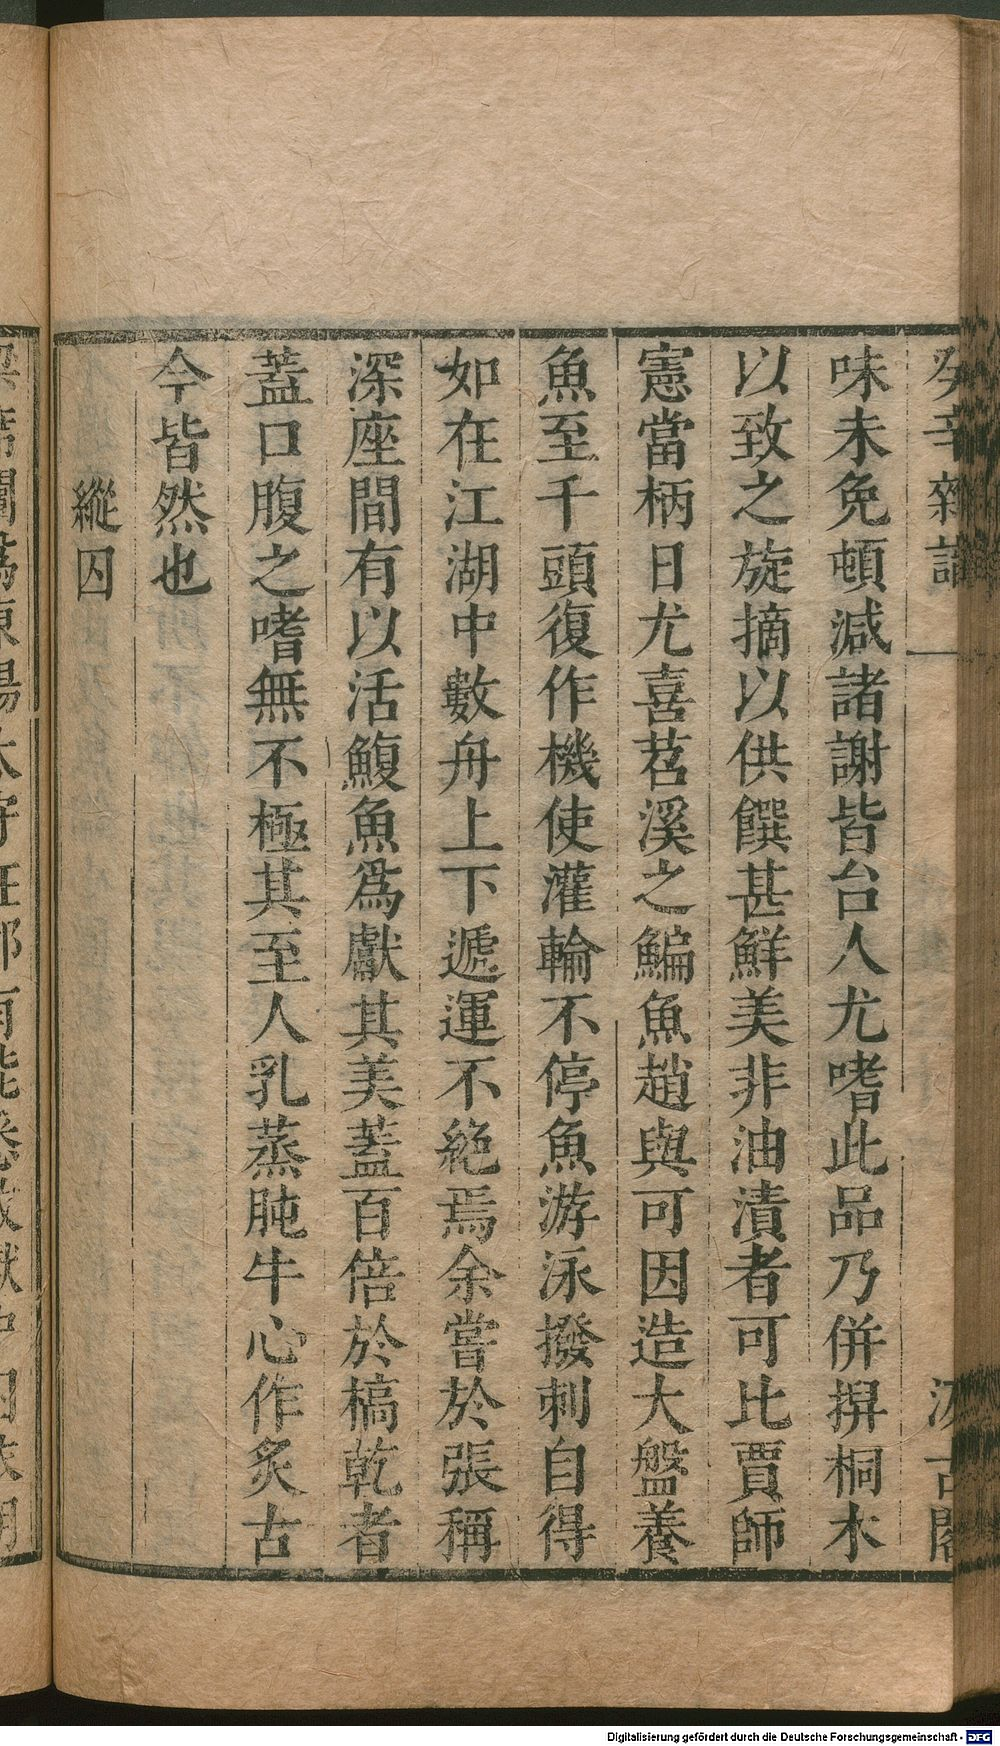 癸辛雜識
汲古閣
味未免頓減諸謝皆台人尤嗜此品乃併舁桐木
以致之旋摘以供饌甚鮮美非油漬者可比賈師
憲當柄日尤喜苕溪之鯿魚趙與可因造大盤養
魚至千頭復作機使灌輸不停魚游泳撥刺自得
如在江湖中數舟上下遞運不絶焉余嘗於張稱
深座間有以活鰒魚爲獻其美蓋百倍於槁乾者
蓋口腹之嗜無不極其至人乳蒸肫牛心作炙古
今皆然也
縱囚
Digitalisierung gefördert durch die Deutsche Forschungsgemeinschaft - DFG